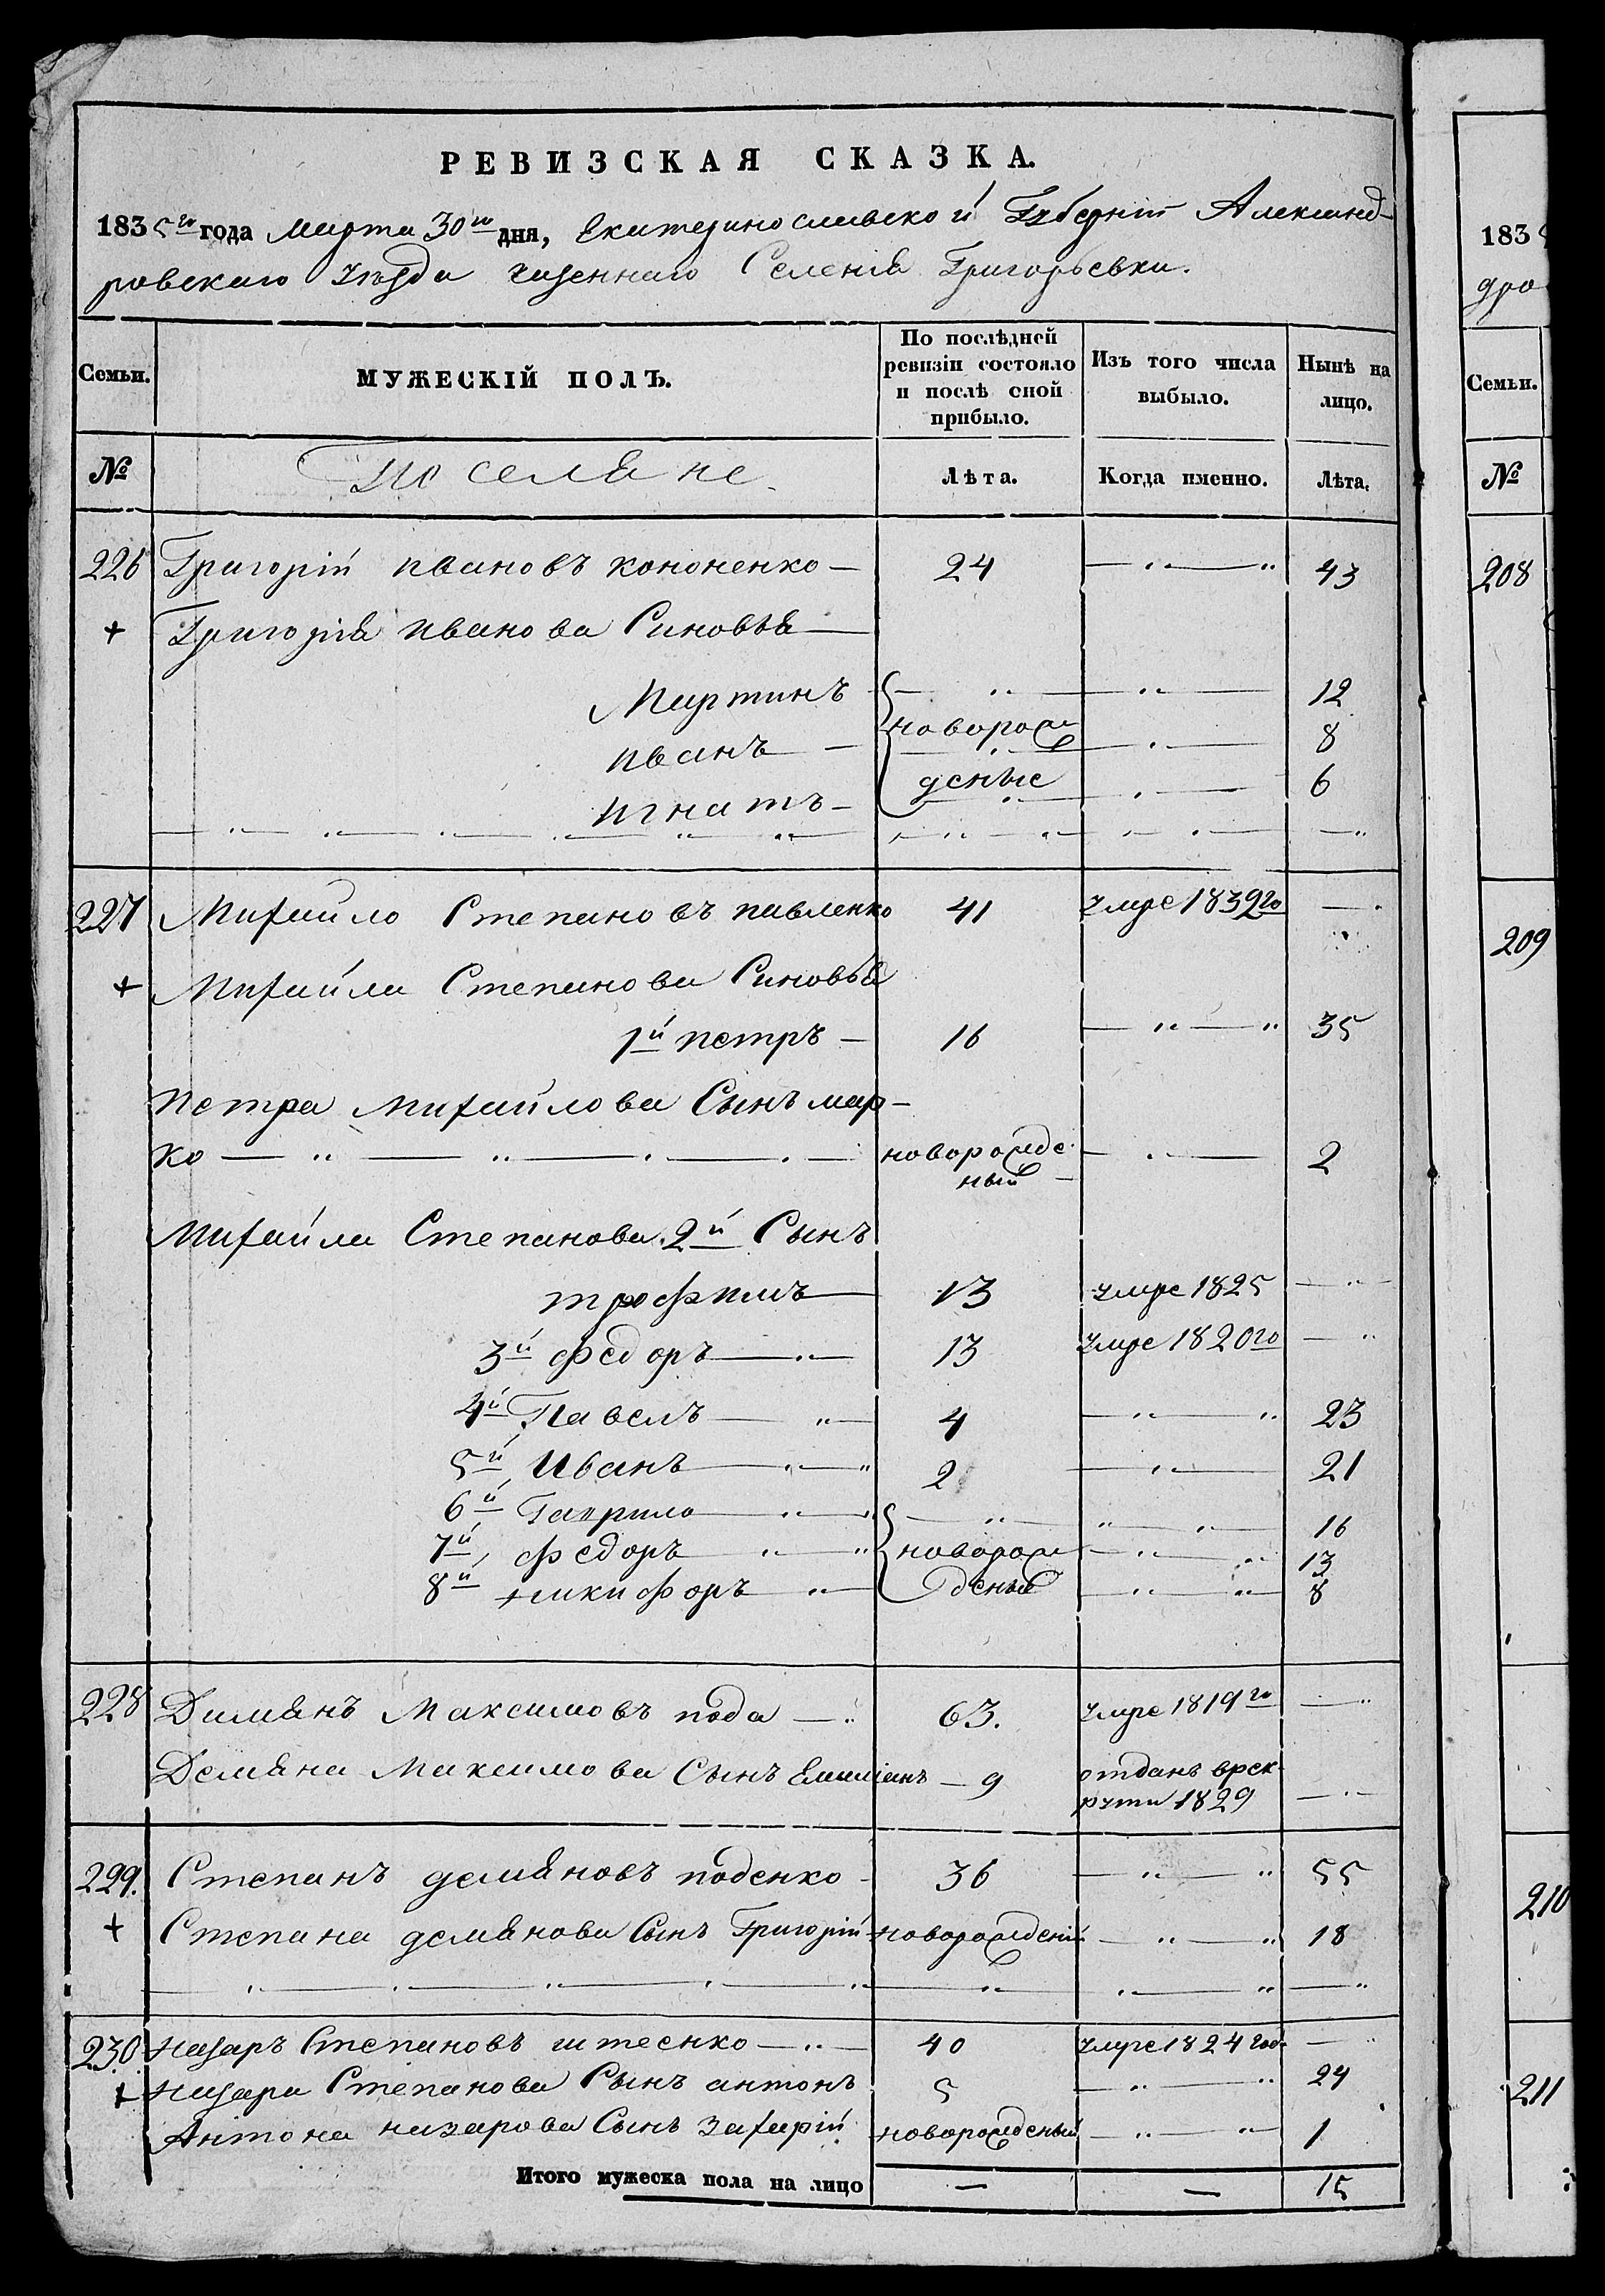 РЕВИЗСКАЯ СКАЗКА.
1835го года марта 30го дня, Екатеринославской Губерніи Александ-
ровскаго уѣзда казеннаго Селенія Григорьевки.
Семьи. МУЖЕСКІЙ ПОЛЪ. По послѣдней ревизіи состояло и послѣ оной прибыло. Изъ того числа выбыло. Нынѣ на лицо.
№ Поселяне. Лѣта. Когда именно. Лѣта.
226 Григорій ивановъ кононенко — 24 — „ — „ 43
+ Григорія иванова Синовья —
Мартинъ — „ — „ — 12
иванъ — новорож — „ — 8
игнатъ — деные — „ — 6
227 Михайло Степановъ павленко 41 умре 1832го —
+ Михайла Степанова Синовья
1й петръ — 16 — „ — „ 35
петра михайлова Сынъ мар-
ко — „ — „ — новорожде- — „ — 2
ный —
Михайла Степанова 2й Сынъ
трофимъ — 13 умре 1825 — „
3й федоръ — „ — 13 умре 1820го — „
4й Павелъ — „ — 4 — „ — „ 23
5й Иванъ — „ — „ 2 — „ — 21
6й Гаврило — „ — „ — „ „ — „ — 16
7й федоръ — „ — „ новорож — „ — „ 13
8й никифоръ — „ — деные — „ — „ — 8
228 Димянъ Максимовъ пода — „ 63. умре 1819го — „
Демяна Максимова Сынъ Емиліанъ — 9 отданъ врек-
рути 1829 — „ —
299. Степанъ демяновъ поденко - 36 — „ — „ 55
+ Степана демянова Сынъ Григорій новорожденій — „ — „ 18
230 назаръ Степановъ штеенко — „ — 40 умре 1824 год. — „
+ назара Степанова Сынъ антонъ 5 — „ — „ 24
Антона назарова Сынъ захарій новорожденый — „ — „ — 1
Итого мужеска пола на лицо — — 15
183
дро
Семьи.
№
208
209
210
211